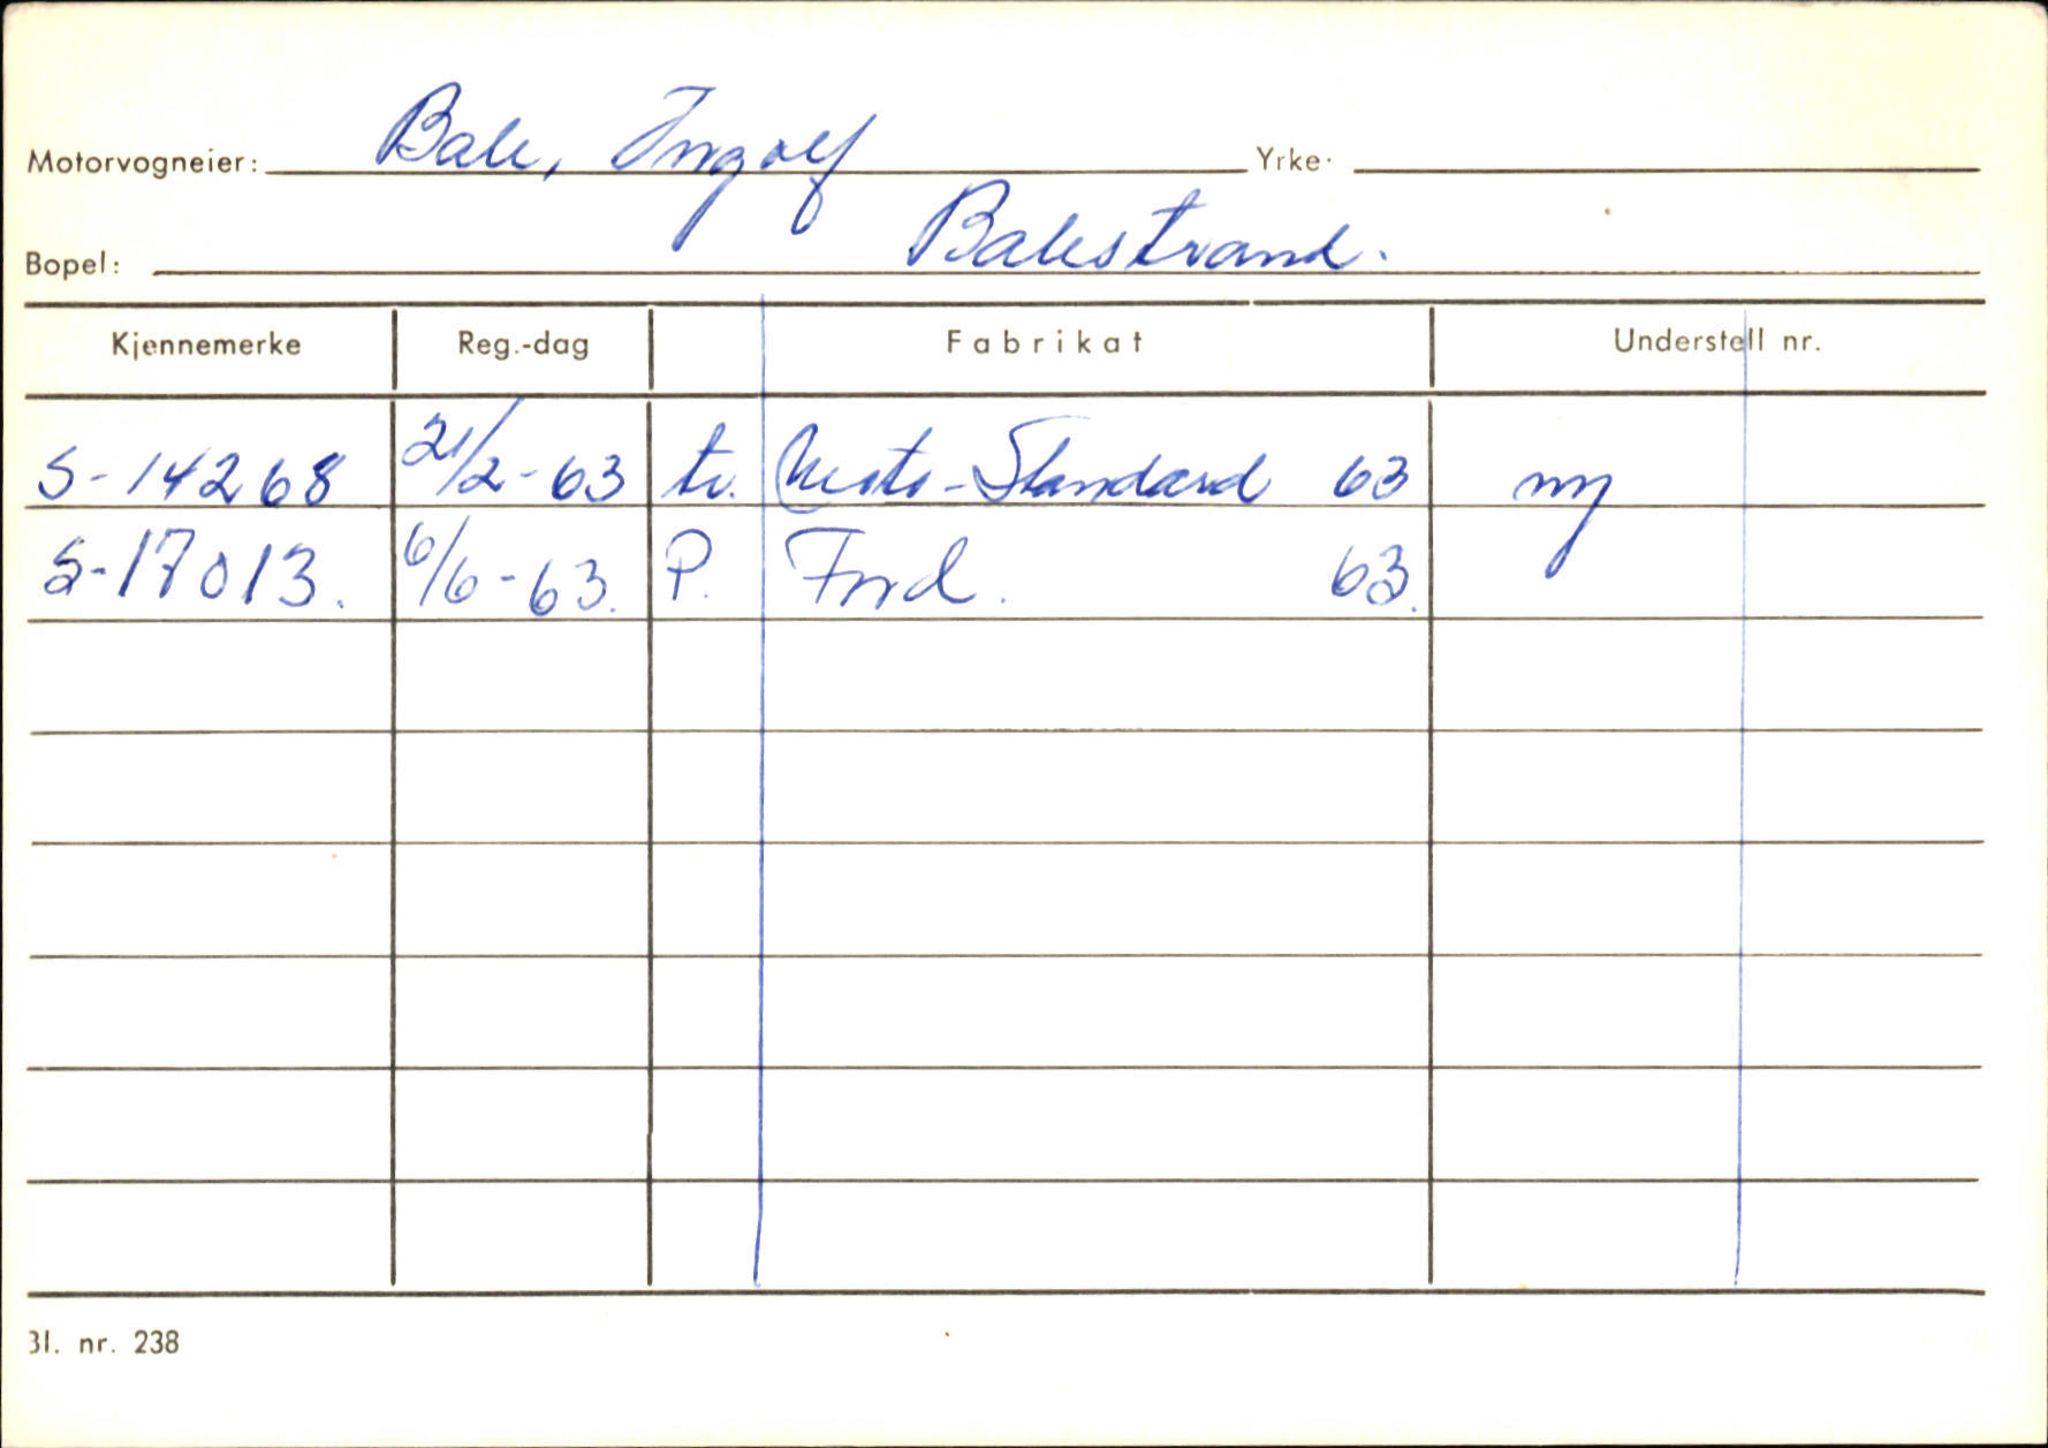 Motorvogneier: Bale, Ingolf Yrke.
Bopel: Balestrand.
Kjennemerke Reg.-dag Fabrikat Understell nr.
S-14268 21/2-63 tv. Mesto-Standard 63 ny
S-17013. 6/6-63. P. Ford. 63.
Bl. nr. 238